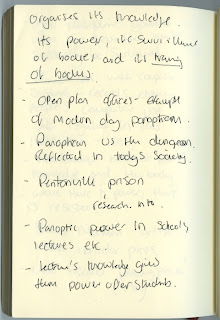 organises its knowledge.
Its power, its surveillance
of bodies and its training
of bodies
- Open plan offices - example
of modern day panopticism.
- Panopticon vs the dungeon,
Reflected in today's society.
- Pentonville prison
research into.
- Panoptic power in schools,
lectures etc.
- lecturer's knowledge gives
them power over students.